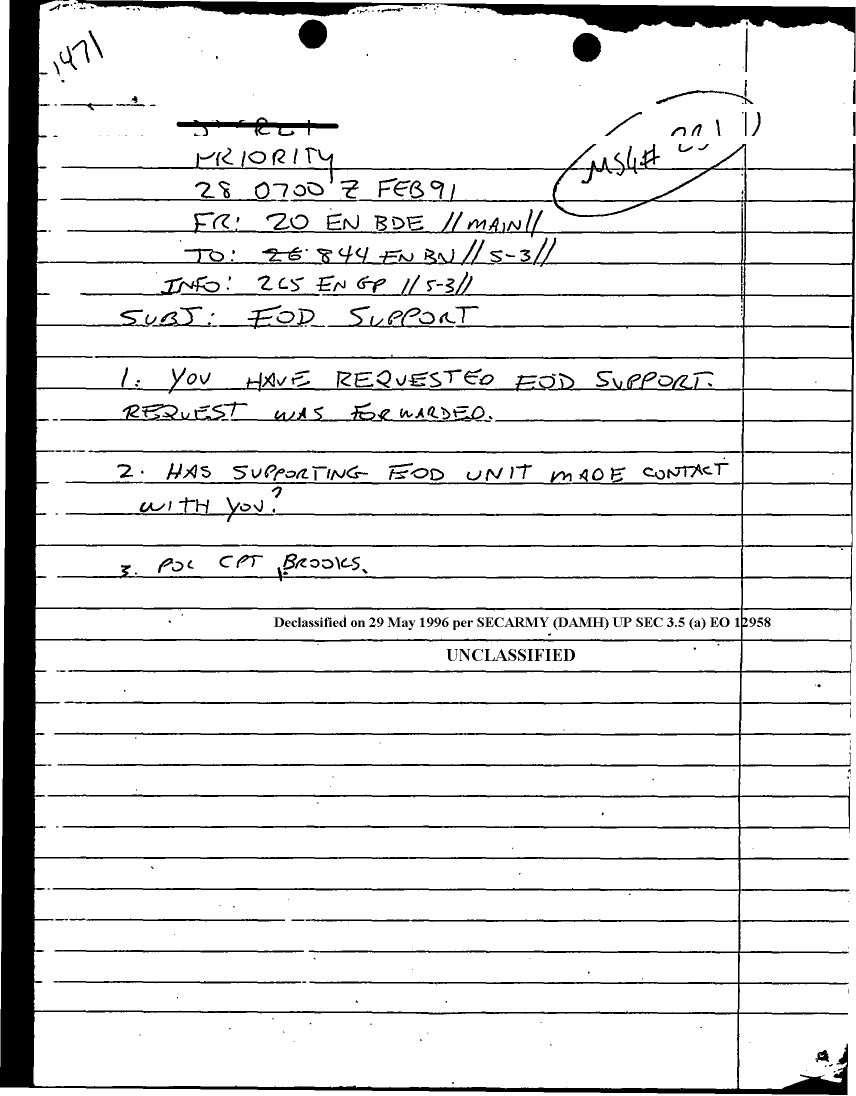 1471
MSG#
PRIORITY
28 0700 Z FEB 91
FR: 20 EN BDE // MAIN //
TO: 844 EN BN // S-3 //
INFO: 265 EN GP // S-3 //
SUBJ: EOD SUPPORT
1. YOU HAVE REQUESTED EOD SUPPORT.
REQUEST WAS FORWARDED.
2. HAS SUPPORTING EOD UNIT MADE CONTACT
WITH YOU?
3. POC CPT BROOKS.
Declassified on 29 May 1996 per SECARMY (DAMH) UP SEC 3.5 (a) EO 12958
UNCLASSIFIED